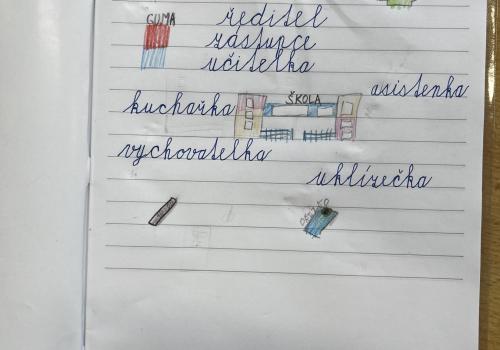 GUMA ředitel
zástupce
učitelka
asistenka
ŠKOLA
kuchařka
vychovatelka
uklízečka